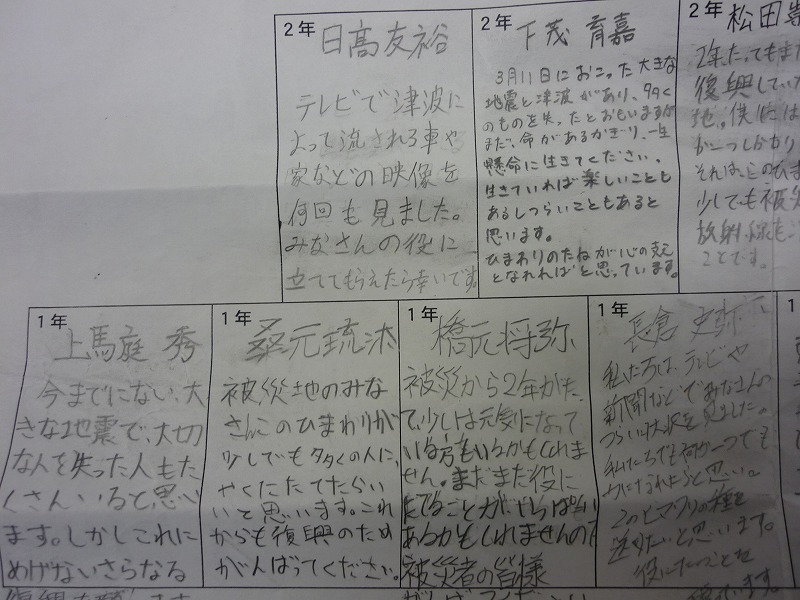 2年
日高友裕
テレビで津波に
よって流される車や
家などの映像を
何回も見ました。
みなさんの役に
立ててもらえたら幸いです
2年
下茂 育嘉
3月11日におこった大きな
地震と津波があり、多く
のものを失ったとおもいますが
まだ、命があるかぎり、一生
懸命に生きてください。
生きていれば楽しいことも
あるしつらいこともあると
思います。
ひまわりのたねが心の支え
となれればと思っています。
2年
松田
2年たってもまだ
復興してい
地。僕達は
が一つしかり
それは、このひま
少しでも被災
放射線を
ことです。
1年
上馬庭 秀
今までにない、大
きな地震で、大切
な人を失った人もた
くさんいると思い
ます。しかしこれに
めげないさらなる
復興を願います
1年
桑元琉
被災地のみな
さんこのひまわりが
少しでも多くの人に、
やくにたてたらい
いと思います。これ
からも復興のため
がんばってください。
1年
橋元将弥
被災から2年がた
って、少しは元気になって
いる方もいるかもしれま
せん。まだまだ役に
たてることが
あるかもしれませんので
被災者の皆様
がんばってください
1年
長倉 史弥
私たちは、テレビや
新聞などでみなさんの
つらい状況を見ました。
私たちでも何か一つでも
力になれればと思い。
このヒマワリの種を
送りたいと思います。
役にたつことを
います
1年